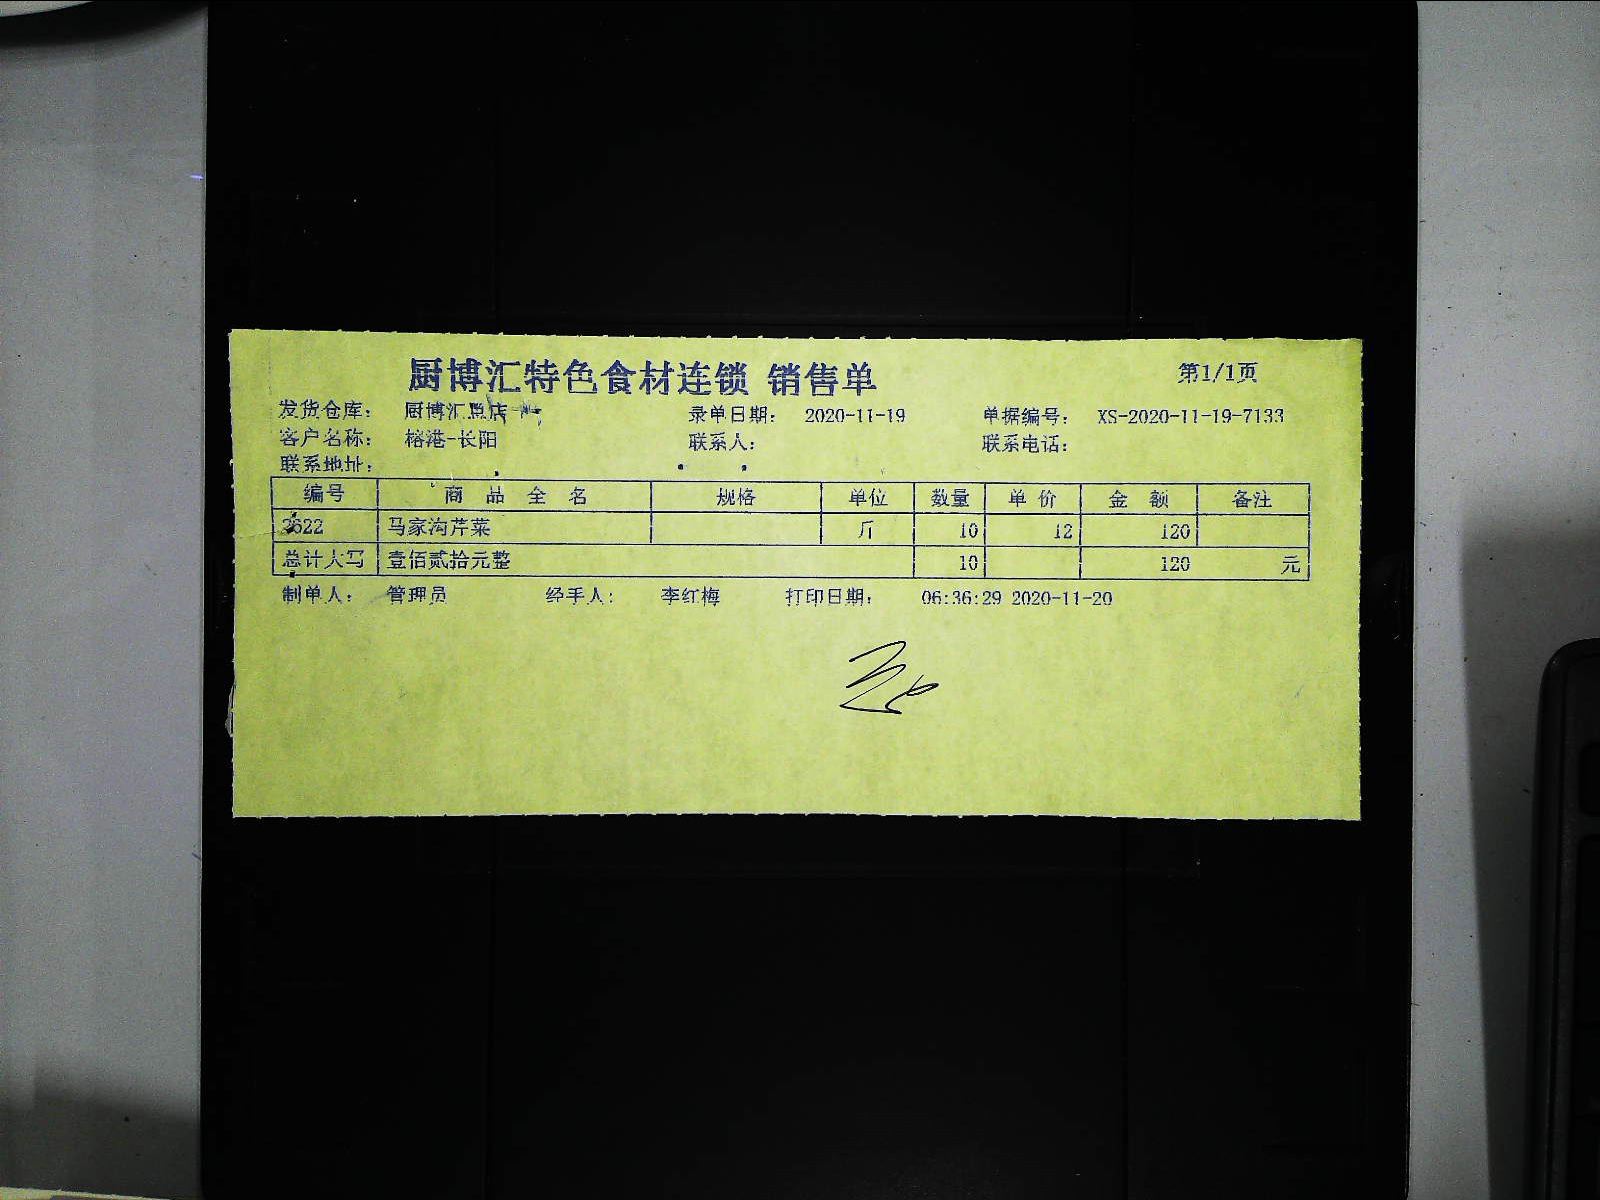 厨博汇特色食材连锁 销售单 第1/1页
发货仓库： 厨博汇总店 录单日期： 2020-11-19 单据编号： XS-2020-11-19-7133
客户名称： 榕港-长阳 联系人： 联系电话：
联系地址：
编号 商品全名 规格 单位 数量 单价 金额 备注
3622 马家沟芹菜 斤 10 12 120
总计大写 壹佰贰拾元整 10 120 元
制单人： 管理员 经手人： 李红梅 打印日期： 06:36:29 2020-11-20